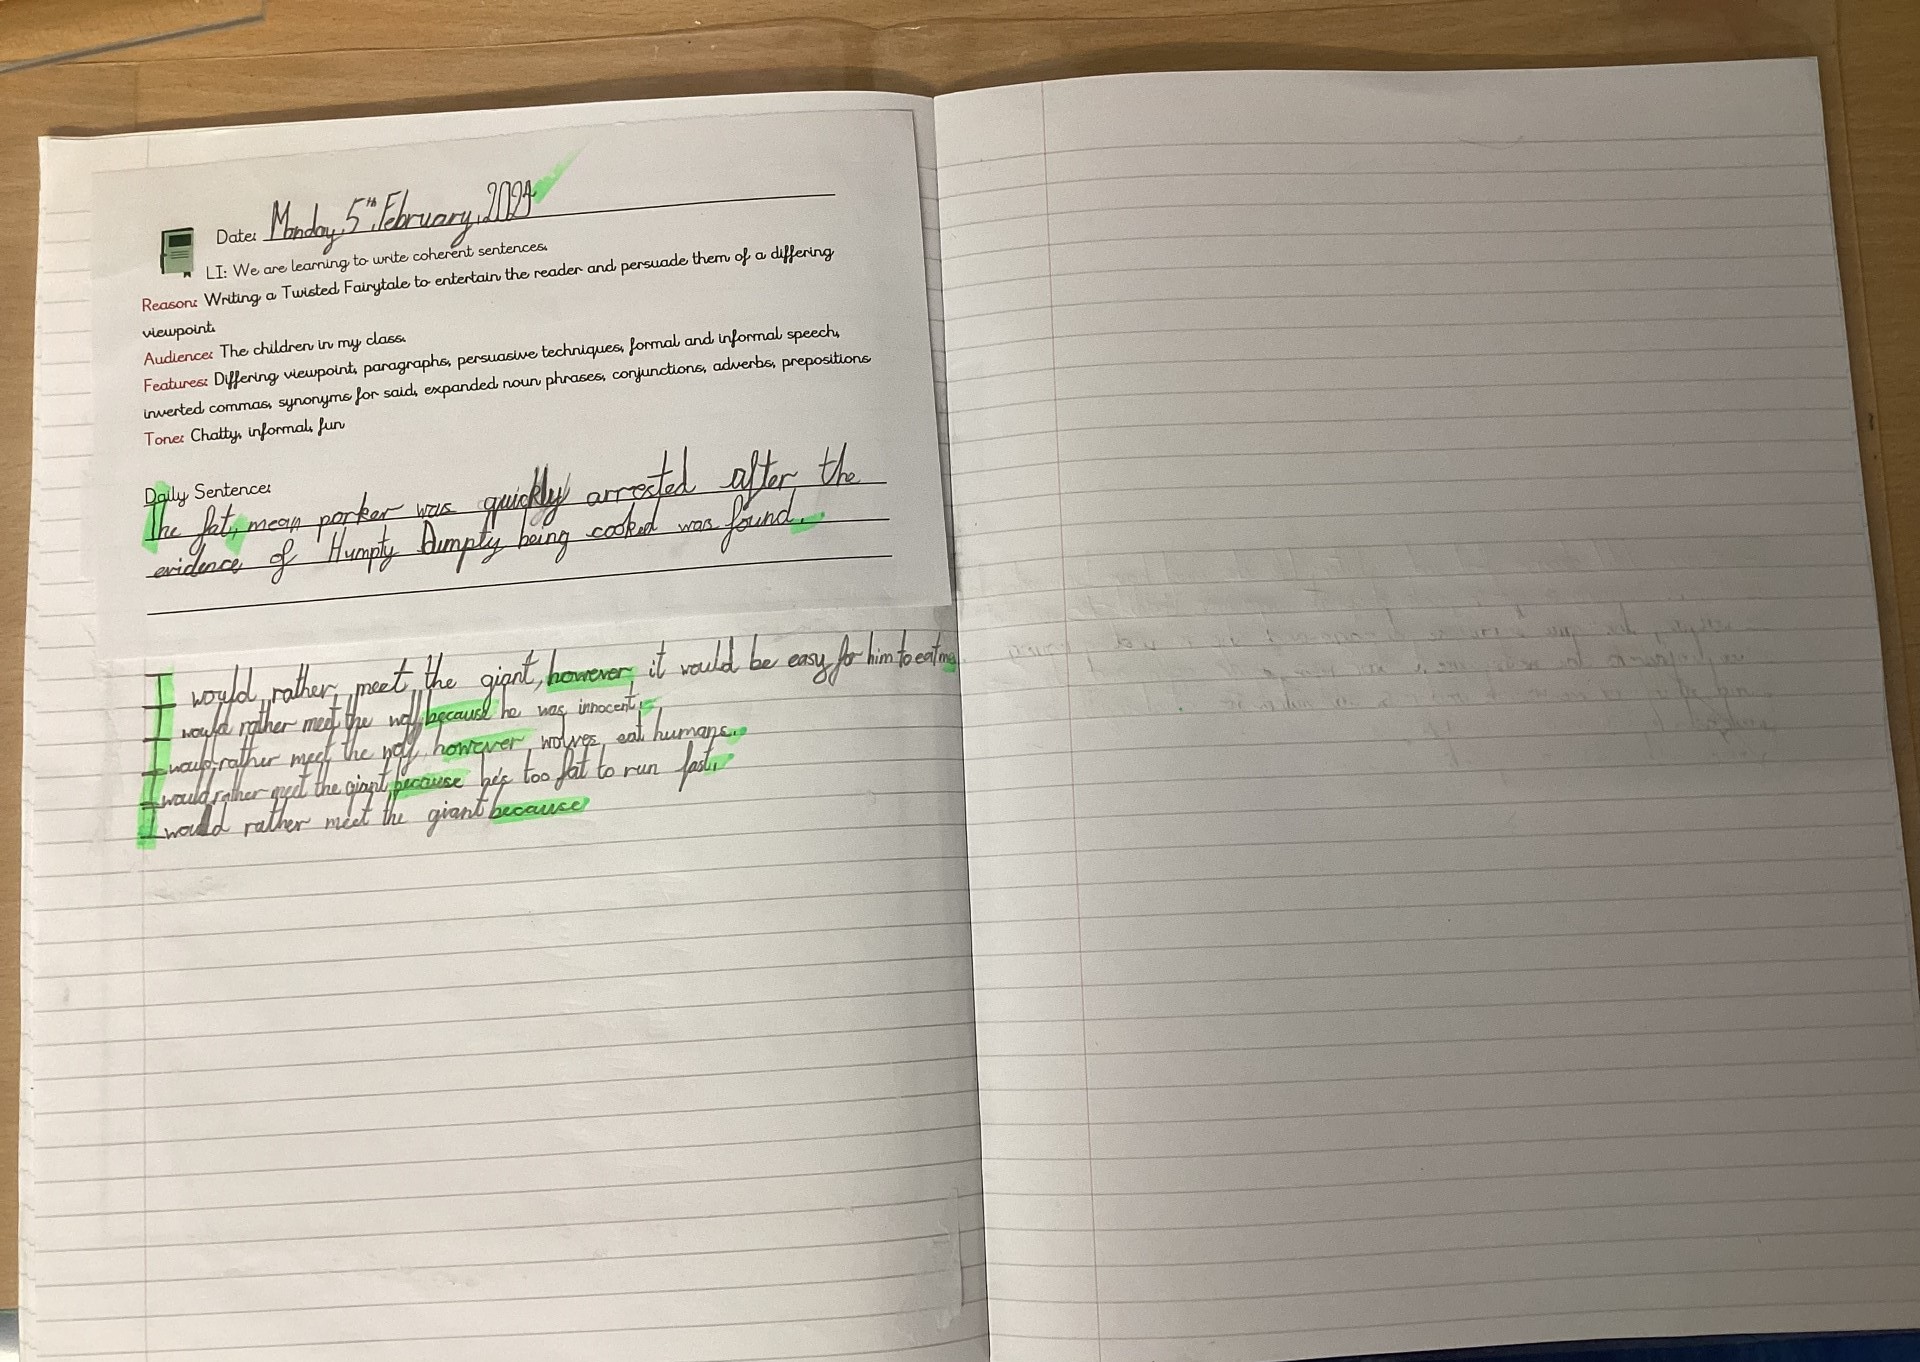 Date: Monday, 5th, February, 2024
LI: We are learning to write coherent sentences.
Reason: Writing a Twisted Fairytale to entertain the reader and persuade them of a differing
viewpoint.
Audience: The children in my class.
Features: Differing viewpoint, paragraphs, persuasive techniques, formal and informal speech,
inverted commas, synonyms for said, expanded noun phrases, conjunctions, adverbs, prepositions
Tone: Chatty, informal, fun
Daily Sentence:
The fat, mean porker was quickly arrested after the
evidence of Humpty Dumpty being cooked was found.
I would rather meet the giant, however it would be easy for him to eat me.
I would rather meet the wolf because he was innocent.
I would rather meet the wolf, however wolves eat humans.
I would rather meet the giant because he's too fat to run fast.
I would rather meet the giant because